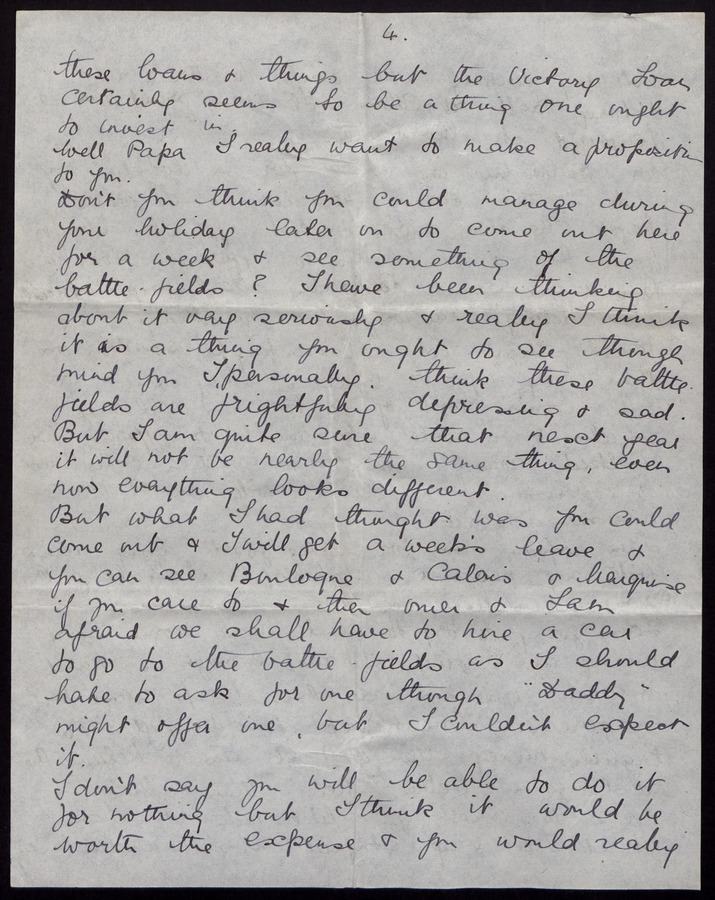 4.
these loans & things but the Victory Loan
certainly seems to be a thing one ought
to invest in.
Well Papa I really want to make a proposition
to you.
Don't you think you could manage during
your holiday later on to come out here
for a week & see something of the
battle-fields? I have been thinking
about it very seriously & really I think
it is a thing you ought to see though
mind you I personally think these battle-
fields are frightfully depressing & sad.
But I am quite sure that next year
it will not be nearly the same thing, even
now everything looks different.
But what I had thought was you could
come out & I will get a week's leave &
you can see Boulogne & Calais & Marquise
if you care to & then & I am
afraid we shall have to hire a car
to go to the battle-fields as I should
hate to ask for one though "Daddy"
might offer one, but I couldn't expect
it.
I don't say you will be able to do it
for nothing but I think it would be
worth the expense & you would really